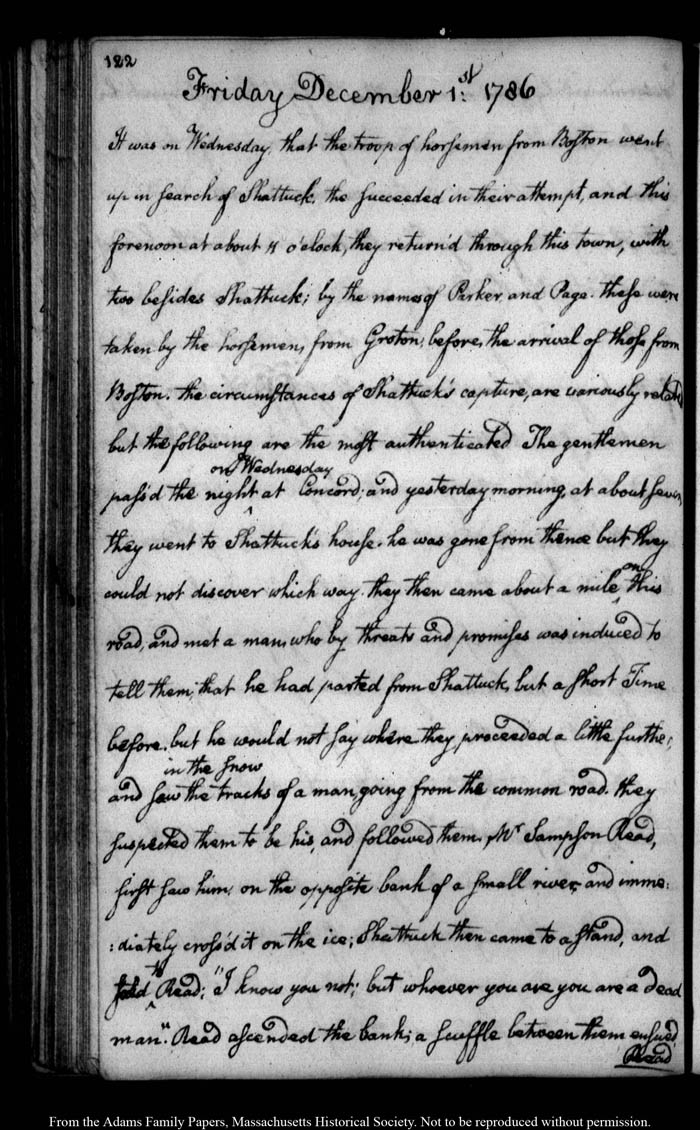 122
Friday December 1.st 1786
It was on Wednesday, that the troop of horsemen from Boston went
up in search of Shattuck, the succeeded in their attempt, and this
forenoon at about 11 o'clock, they return'd through this town, with
two besides Shattuck; by the names of Parker and Page. these were
taken by the horsemen, from Groton, before, the arrival of those from
Boston. the circumstances of Shattuck's capture, are variously related
but the following are the most authenticated The gentlemen
on Wednesday
pass'd the night ^ at Concord; and yesterday morning, at about seven
they went to Shattuck's house. he was gone from thence but they
on
could not discover which way. they then came about a mile ^ this
road, and met a man, who by threats and promises was induced to
tell them, that he had parted from Shattuck, but a short Time
before. but he would not say where they proceeded a little further,
in the snow
and saw the tracks of a man, going from the common road. they
suspected them to be his, and followed them. Mr Sampson Read,
first saw him, on the opposite bank of a small river, and imme:
:diately cross'd it on the ice; Shattuck then came to a stand, and
to
said ^ Read; "I know you not; but whoever you are you are a dead
man." Read ascended the bank; a scuffle between them ensued,
Read
From the Adams Family Papers, Massachusetts Historical Society. Not to be reproduced without permission.